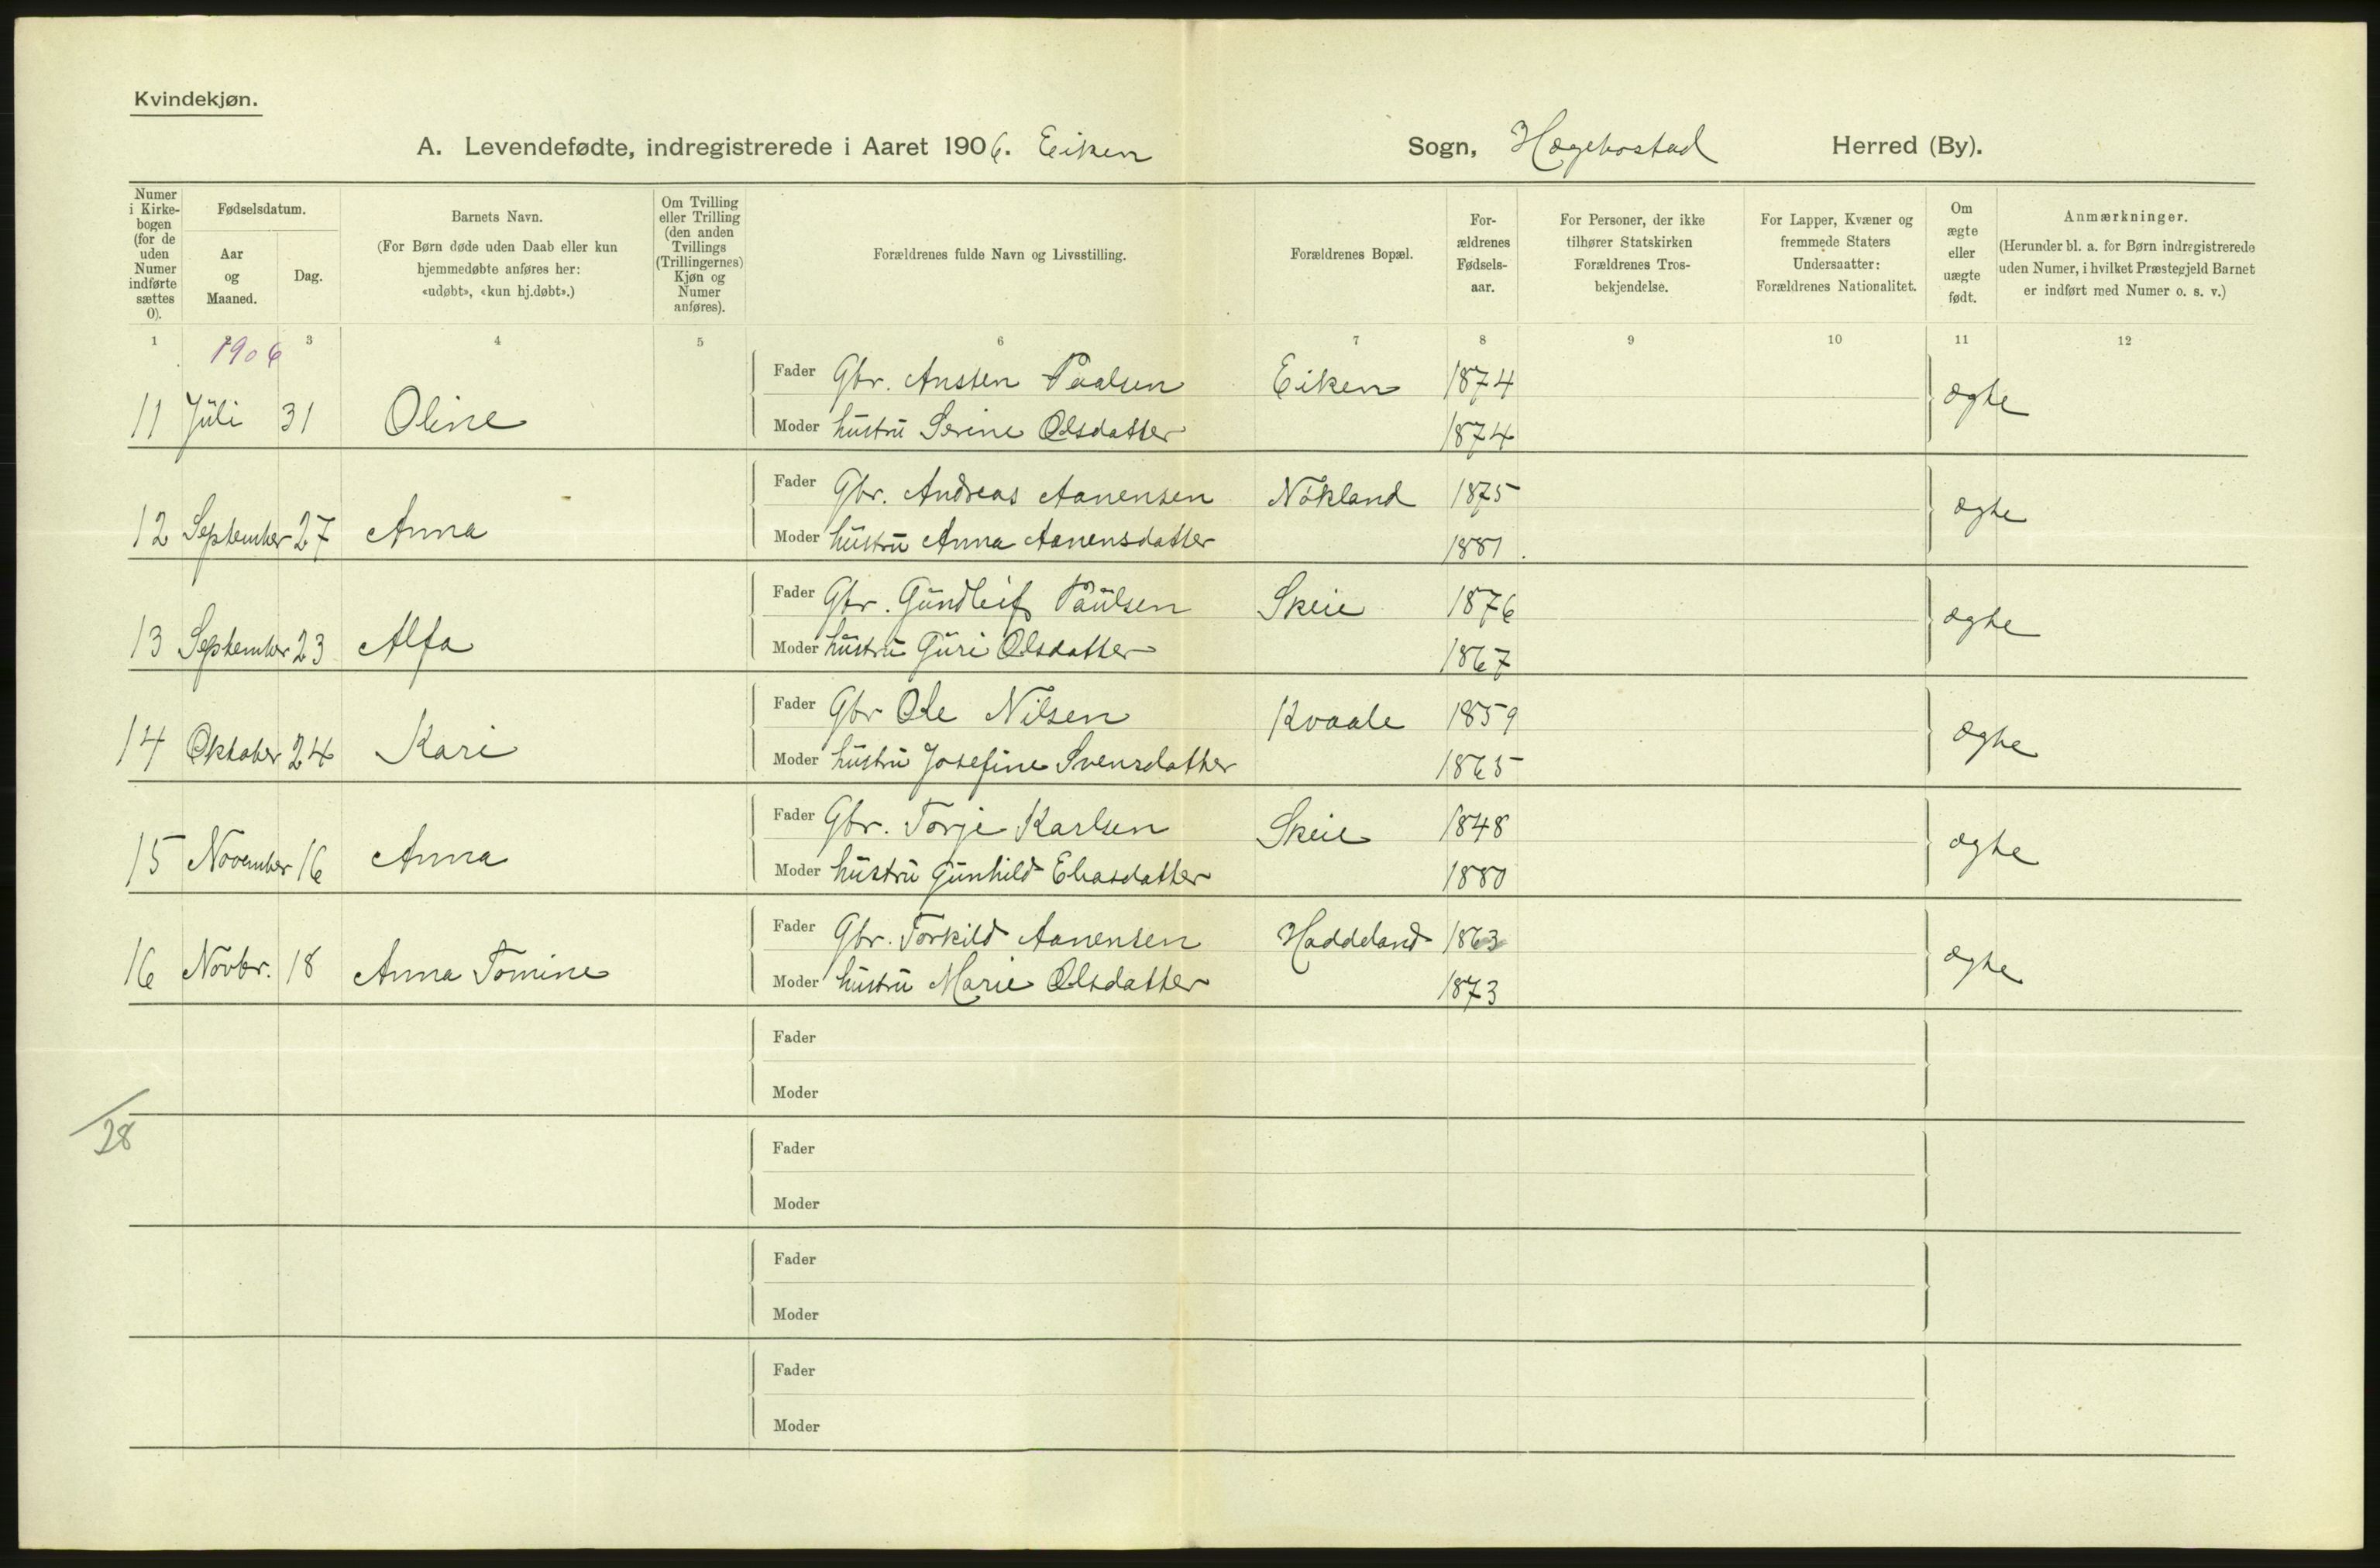 Kvindekjøn.
A. Levendefødte, indregistrerede i Aaret 1906. Eiken Sogn, Hægebostad Herred (By).
Numer i Kirkebogen (for de uden Numer indførte sættes 0).
Fødselsdatum.
Aar og Maaned.
Dag.
Barnets Navn.
(For Børn døde uden Daab eller kun hjemmedøbte anføres her: «udøbt», «kun hj.døbt».)
Om Tvilling eller Trilling (den anden Tvillings (Trillingernes) Kjøn og Numer anføres).
Forældrenes fulde Navn og Livsstilling.
Forældrenes Bopæl.
Forældrenes Fødselsaar.
For Personer, der ikke tilhører Statskirken Forældrenes Trosbekjendelse.
For Lapper, Kvæner og fremmede Staters Undersaatter: Forældrenes Nationalitet.
Om ægte eller uægte født.
Anmærkninger.
(Herunder bl. a. for Børn indregistrerede uden Numer, i hvilket Præstegjeld Barnet er indført med Numer o. s. v.)
1 2 3 4 5 6 7 8 9 10 11 12
1906
Fader Gbr. Ansten Paalsen Eiken 1874
11 Juli 31 Oline ægte
Moder hustru Serine Olsdatter 1874
Fader Gbr. Andreas Aanensen Nökland 1875
12 September 27 Anna ægte
Moder hustru Anna Aanensdatter 1881.
Fader Gbr. Gundleif Paulsen Skeie 1876
13 September 23 Alfa ægte
Moder hustru Guri Olsdatter 1867
Fader Gbr Ole Nilsen Kvaale 1859
14 Oktober 24 Kari ægte
Moder hustru Josefine Svensdatter 1865
Fader Gbr. Torje Karlsen Skeie 1848
15 November 16 Anna ægte
Moder hustru Gunhild Eliasdatter 1880
Fader Gbr. Torkild Aanensen Haddeland 1863
16 Novbr. 18 Anna Tomine ægte
Moder hustru Marie Olsdatter 1873
Fader
Moder
28
Fader
Moder
Fader
Moder
Fader
Moder